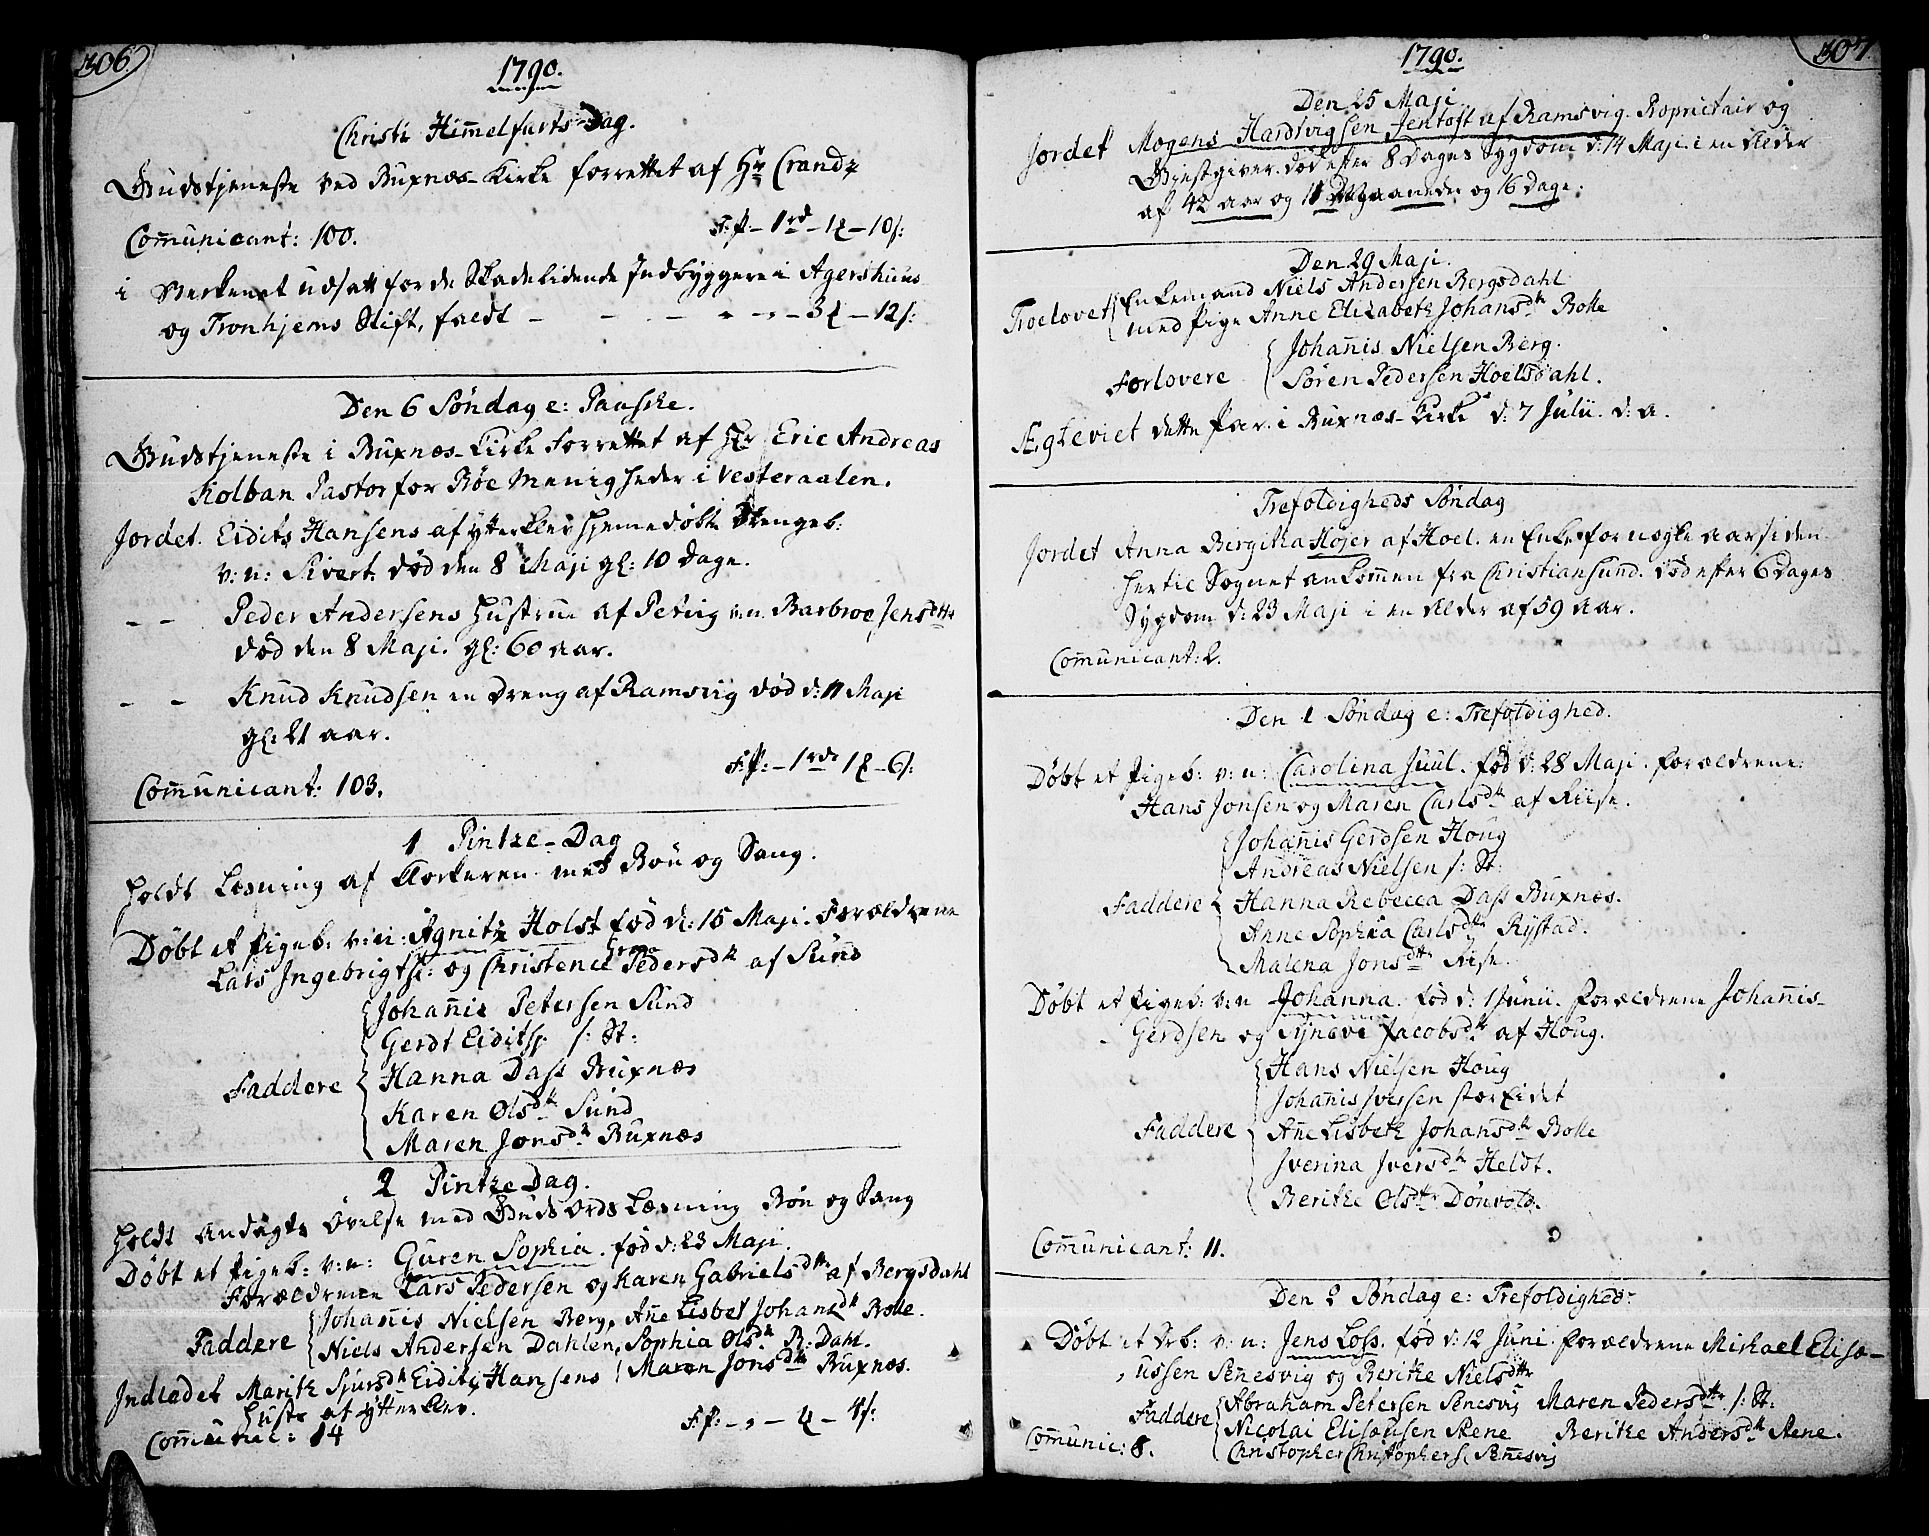 306.
1790.
Christi Himmelfarts-Dag.
Gudstjeneste ved Buxnæs-Kirke forrettet af Hr Crandz
Comunicant: 100.
F:f:-1rd-1-10s:
i Verkenet udsatt for de Skadelidende Indbyggere i Agershuus
og Tronhjems Stift, faldt - - - - - 3-12s:
Den 6 Søndag e: Paaske.
Gudstjeneste i Buxnæs-Kirke forrettet af Hr Eric Andreas
Kolban Pastor for Bøe Menigheder i Vesteraalen.
Jordet. Eidits Hansens af Ytterklev hjemedøbte Drengeb:
v: n: Sivert. død den 8 Maji gl: 10 Dage.
- - Peder Andersens Hustrue af Petvig v:n. Barbroe Jensdttr
død den 8 Maji. gl: 60 aar.
- - Knud Knudsen en Dreng af Ramsvig død d: 11 Maji
gl: 21 aar.
F:f:-1rd 1-6s:
Comunicant: 103.
1 Pintze-Dag
holdt Læsning af Klockeren med Bøn og Sang.
Døbt et Pigeb: v:n: Agnitz Holst fød d: 15 Maji. Forældrene
Lars Ingebrigts: og Christence Pedersdtr af Sund
Johanis Petersen Sund
Gerdt Eidits: s: St:
Faddere Hanna Dass Buxnæs
Karen Olsdtr Sund
Maren Jonsdtr Buxnæs
2 Pintze Dag.
holdt Andagts Øvelse med Guds Ords Læsning Bøn og Sang
Døbt et Pigeb: v:n: Guren Sophia. fød d: 23 Maji
Forældrene Lars Pedersen og Karen Gabrielsdttr af Bergsdahl
Johanis Nielsen Berg, Ane Lisbet Johansdtr Bolle.
Faddere Niels Andersen Dahlen, Sophia Olsdtr B: Dahl.
Maren Jonsdtr Buxnæs.
Indledet Marith Sjursdtr Eidits Hansens
Hustr af Ytterklev.
F:f: - - 4 - s:
Comunic: 14
307.
1790.
Den 25 Maji
Jordet Mogens Hardtvigsen Jentoft af Ramsvig. Proprietair og
Gjestgiver. død efter 8 Dages Sygdom d: 14 Maji. i en Alder
af 42 aar og 11 Maaneder og 16 Dage:
Den 29 Maji.
Troelovet Enkemand Niels Andersen Bergsdahl
med Pige Anne Elisabeth Johansdtr Bolle
Forlovere Johanis Nielsen Berg.
Søren Pedersen Hoelsdahl.
Ægteviet dette Par. i Buxnæs-Kirke d: 7 Julii. d: a.
Trefoldigheds Søndag
Jordet Anna Bergitha Høyer af Hoel. en Enke for nogle aar siden
her til Sognet ankomen fra Christiansund. død efter 6 Dages
Sygdom d: 23 Maji i en Alder af 59 aar.
Comunicant: 2.
Den 1 Søndag e: Trefoldighed.
Døbt et Pigeb: v: n: Carolina Juul. fød d: 28 Maji. forældrene:
Hans Jonsen og Maren Carlsdtr af Riise.
Johanis Gerdsen Houg
Andreas Nielsen s: St:
Faddere Hanna Rebecca Dass Buxnæs.
Anne Sophia Carlsdtr Rystad.
Malena Jonsdttr Riise.
Døbt et Pigeb: v:n Johanna. fød d: 1 Junii. forældrene Johanis-
Gerdsen og Synøvi Jacobsdtr af Houg.
Hans Nielsen Houg
Johanis Iversen StorEidet
Faddere Ane Lisbeth Johansdtr Bolle
Iverina Iversdtr Heldt.
Berithe Olsdtr Dønvold.
Comunicant: 11.
Den 2 Søndag e: Trefoldighed-
Døbt et Drb: v: n: Jens Loss. fød d: 12 Juni. forældrene Mikael Elisæ-
ussen Senesvig og Berithe Nielsdttr
Abraham Petersen Senesvig Maren Pedersdttr s: St:
Faddere Nicolai Elisæusen Steene Berithe Andersdtr Steene.
Christopher Christophers: Senesvig
Comunic: 8.